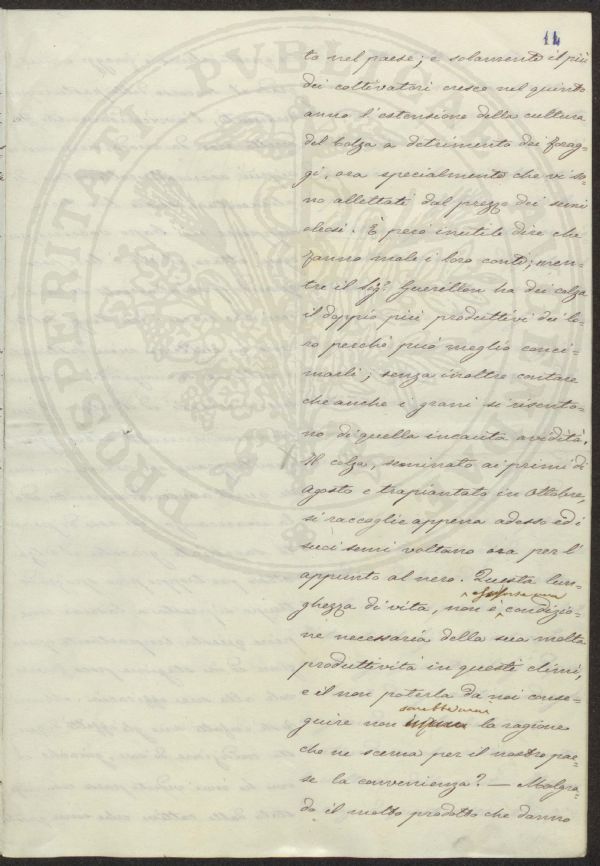 14
to nel paese; e solamente il più
dei coltivatori cresce nel quinto
anno l'estensione della cultura
del Colza a detrimento dei forag-
gi, ora specialmente che vi so-
no allettati dal prezzo dei semi
oleosi. È però inutile dire che
fanno male i loro conti; men-
tre il Sigr. Guerillon ha dei colza
il doppio più produttivi dei lo-
ro perchè può meglio conci-
marli; senza inoltre contare
che anche i grani si risento-
no di quella incauta avidità.
Il colza, seminato ai primi di
Agosto e trapiantato in Ottobre,
si raccoglie appena adesso ed i
suoi semi voltano ora per l'
appunto al nero. Questa lun-
ghezza di vita, non è forse una condizio-
ne necessaria della sua molta
produttività in questi climi,
e il non poterla da noi conse-
guire non sarebbe mai la ragione
che ne scema per il nostro pae-
se la convenienza? — Malgra-
do il molto prodotto che danno
PROSPERITATI PVBLICAE